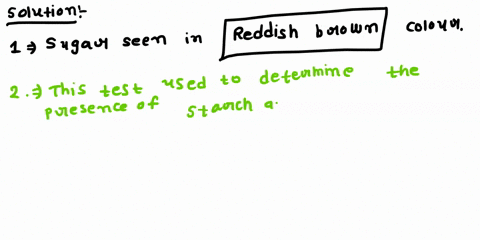 Solution:-
1 ⇒ Sugar seen in Reddish brown colour.
2. ⇒ This test used to determine the
presence of starch a